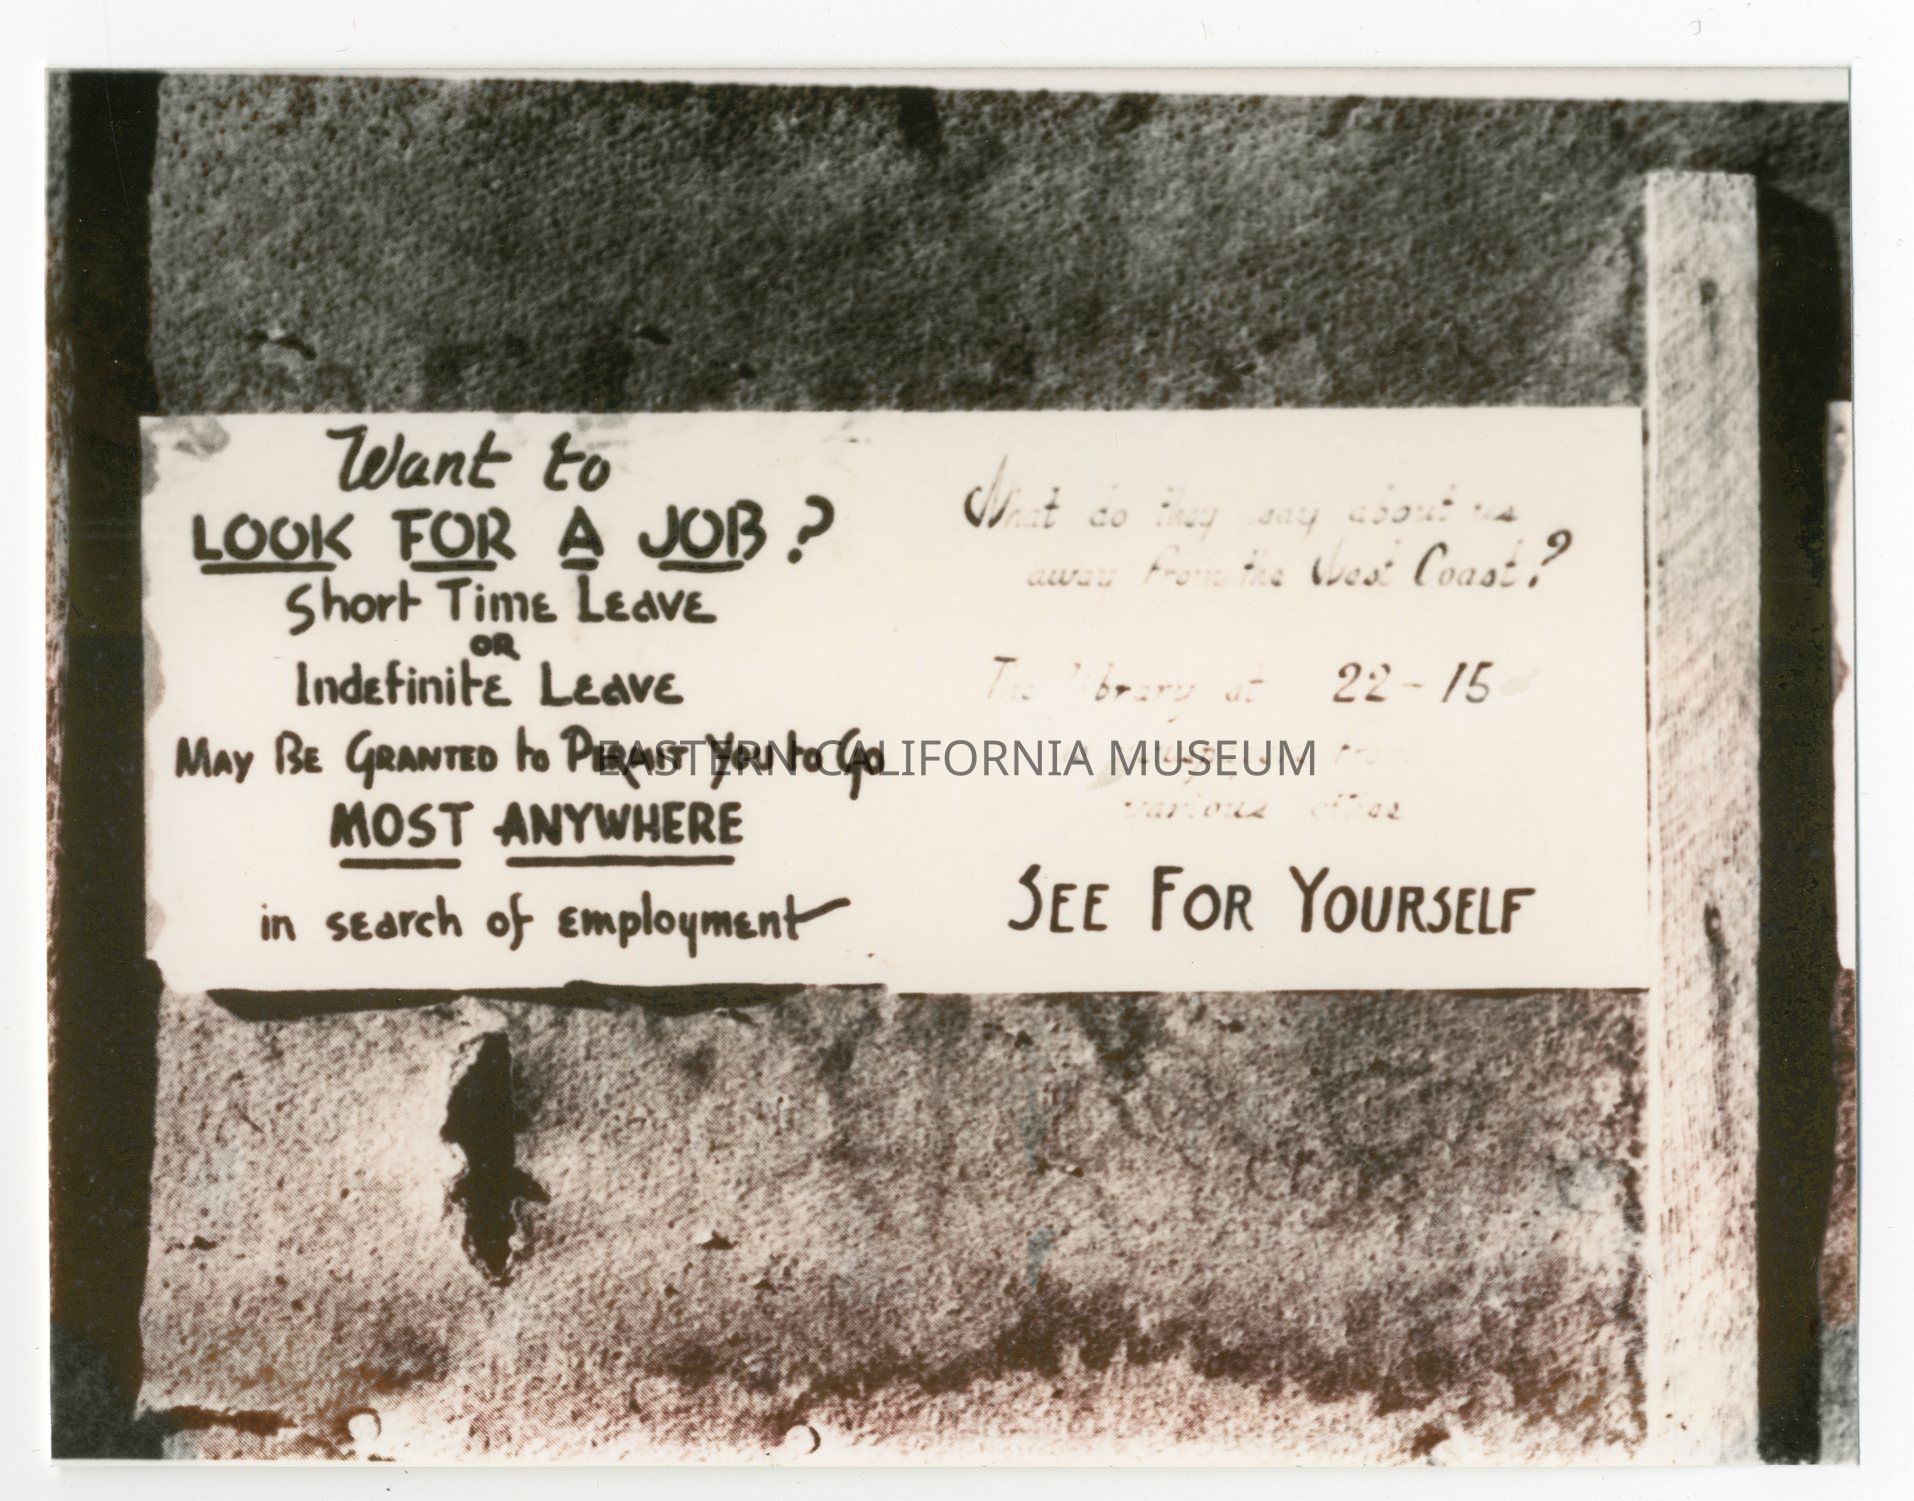 Want to
LOOK FOR A JOB?
Short Time Leave
OR
Indefinite Leave
May Be Granted to Permit You to Go
MOST ANYWHERE
in search of employment
What do they say about us
away from the West Coast?
The library at 22-15
from
various cities
SEE FOR YOURSELF
EASTERN CALIFORNIA MUSEUM